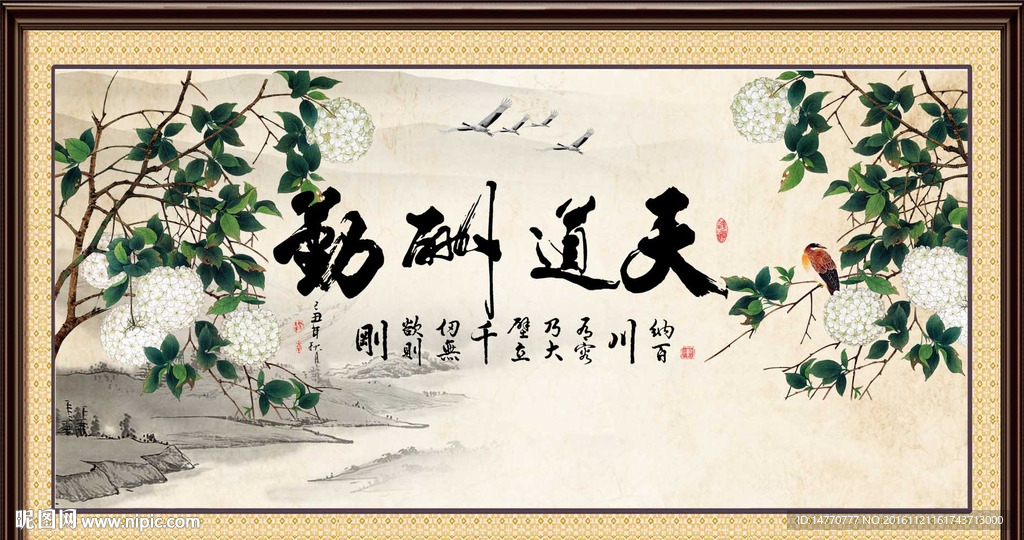 天道酬勤
納百川有容乃大壁立千仞無欲則剛
己丑年秋月
昵图网 www.nipic.com
ID:14770777 NO.20161121161743713000